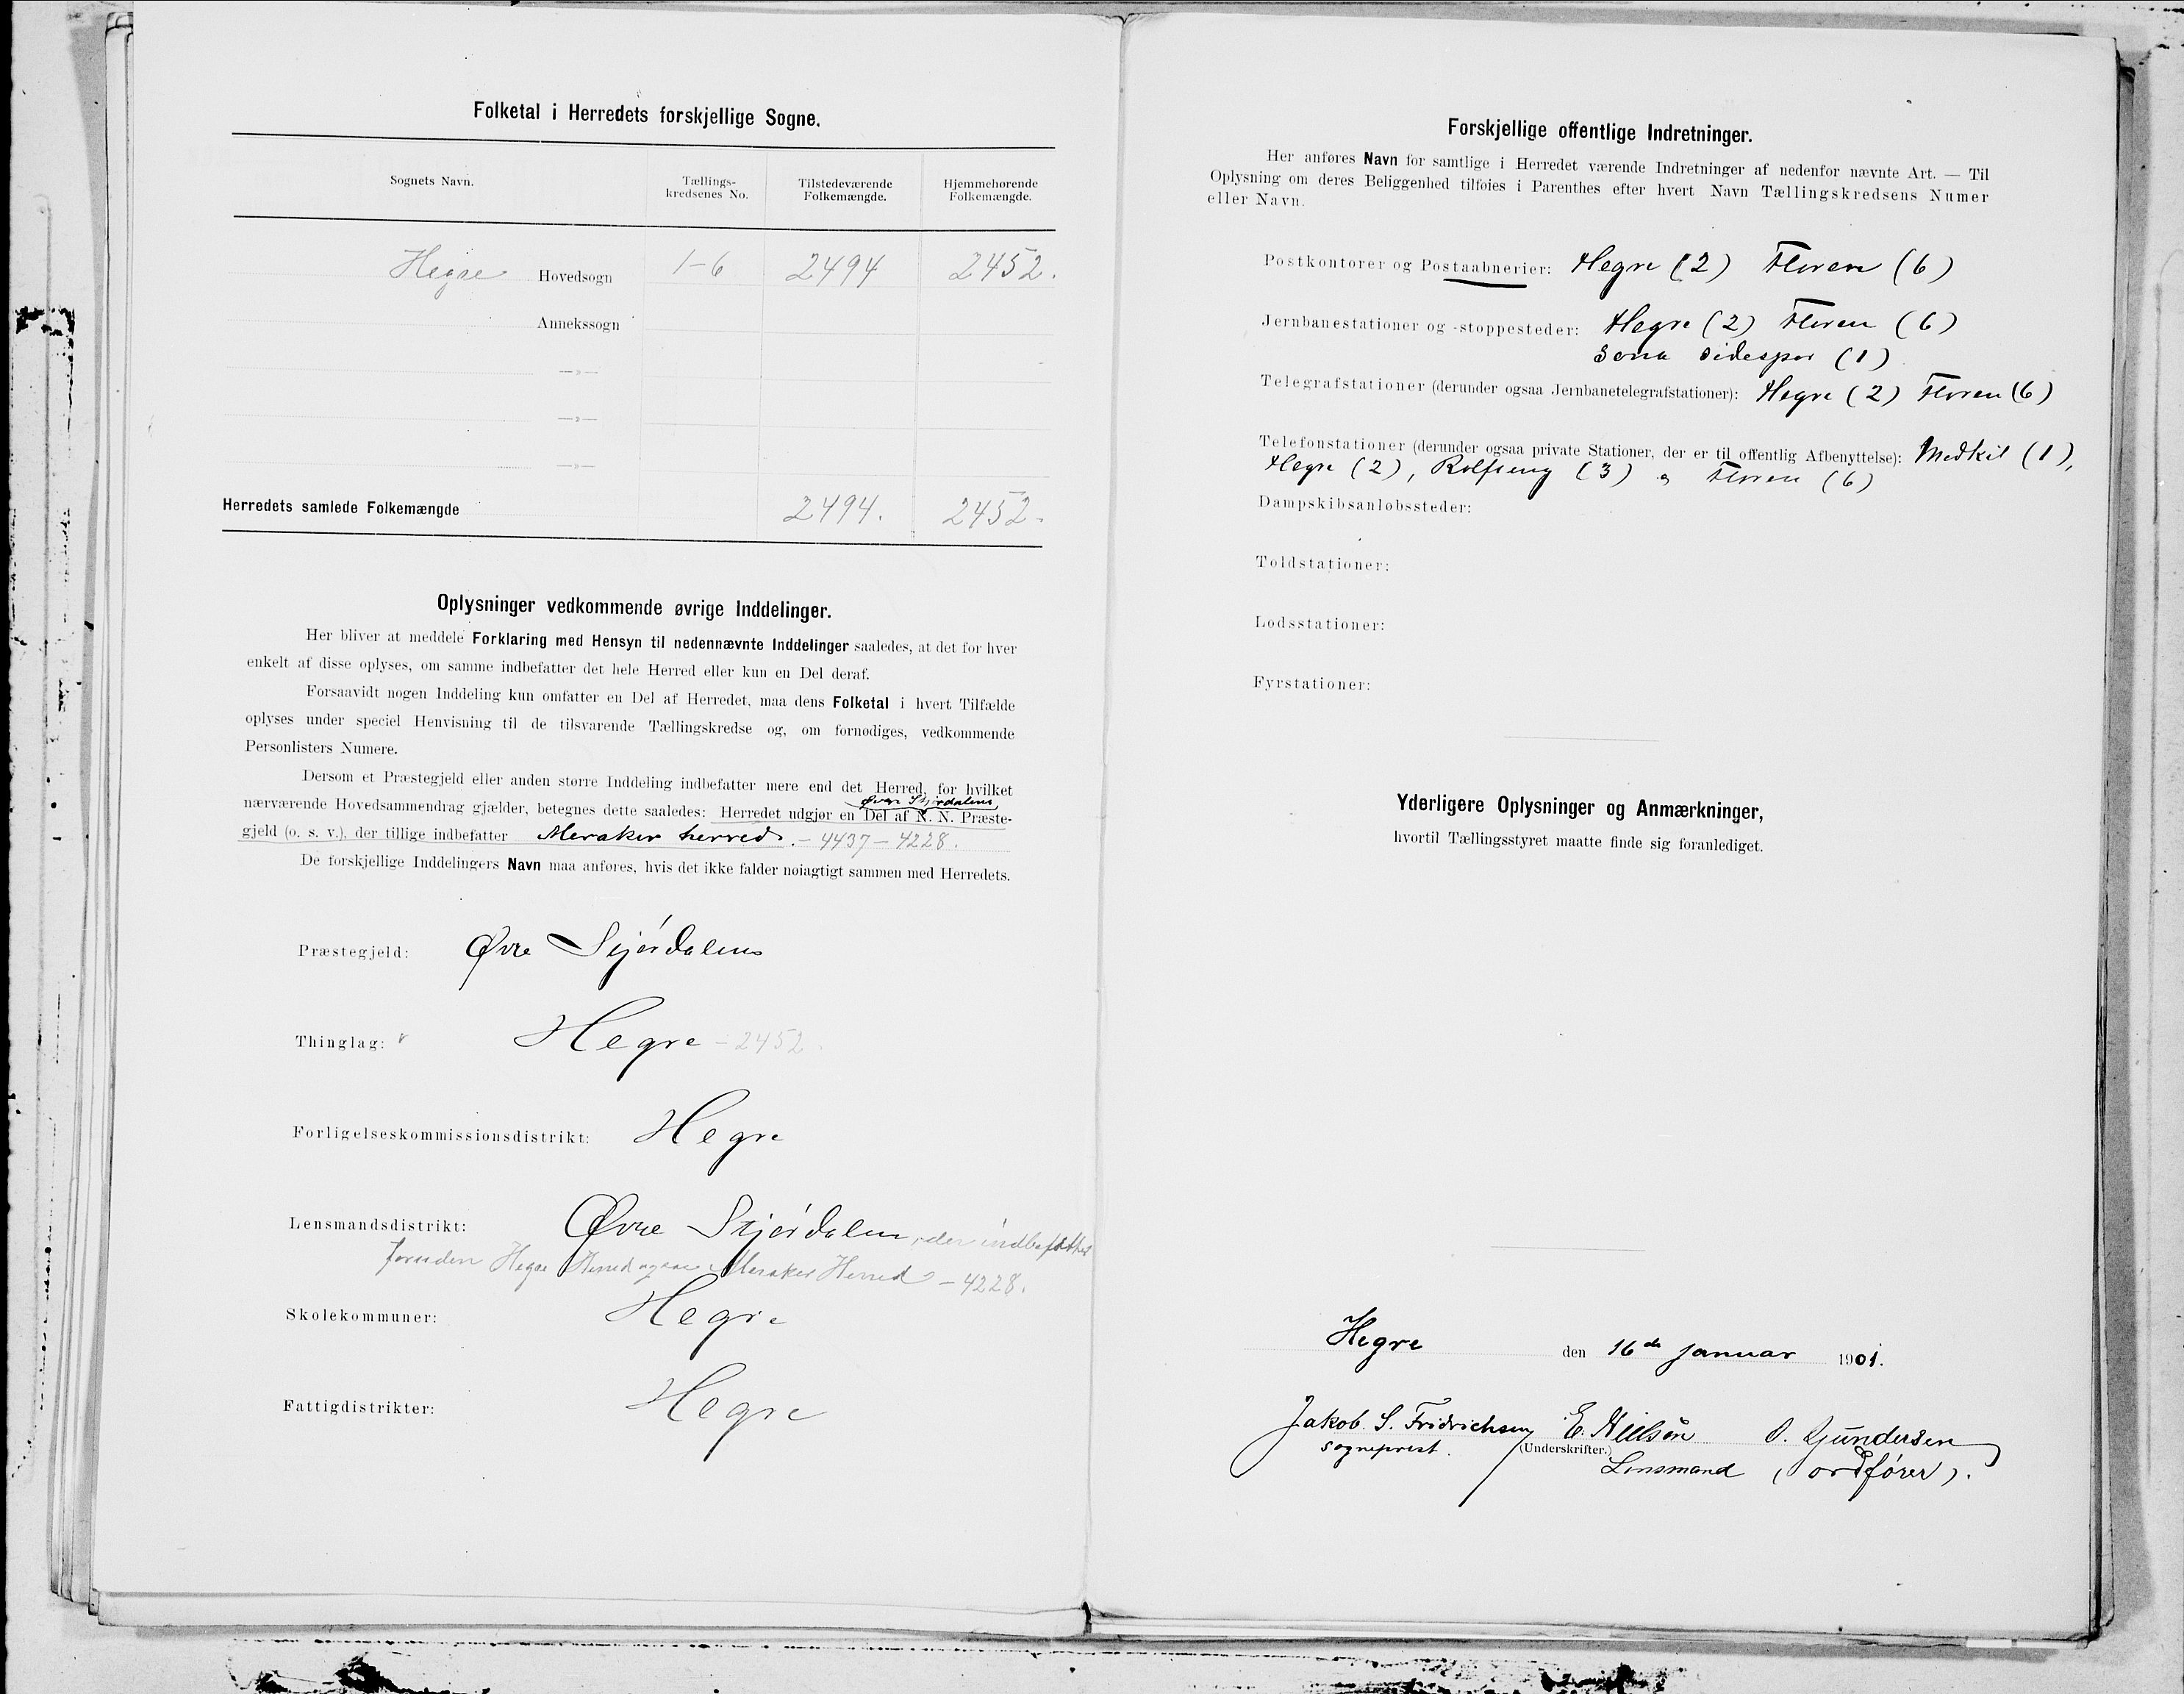 Folketal i Herredets forskjellige Sogne.
Sognets Navn. Tællings-kredsenes No. Tilstedeværende Folkemængde. Hjemmehørende Folkemængde.
Hegre Hovedsogn 1-6 2494 2452.
Annekssogn
—»—
—»—
—»—
Herredets samlede Folkemængde 2494. 2452.
Oplysninger vedkommende øvrige Inddelinger.
Her bliver at meddele Forklaring med Hensyn til nedennævnte Inddelinger saaledes, at det for hver
enkelt af disse oplyses, om samme indbefatter det hele Herred eller kun en Del deraf.
Forsaavidt nogen Inddeling kun omfatter en Del af Herredet, maa dens Folketal i hvert Tilfælde
oplyses under speciel Henvisning til de tilsvarende Tællingskredse og, om fornødiges, vedkommende
Personlisters Numere.
Dersom et Præstegjeld eller anden større Inddeling indbefatter mere end det Herred, for hvilket
Øvre Stjørdalens
nærværende Hovedsammendrag gjælder, betegnes dette saaledes: Herredet udgjør en Del af N. N. Præste-
gjeld (o. s. v.), der tillige indbefatter Meraker herred. – 4437 – 4228.
De forskjellige Inddelingers Navn maa anføres, hvis det ikke falder nøiagtigt sammen med Herredets.
Præstegjeld: Øvre Stjørdalens
Thinglag: Hegre – 2452.
Forligelseskommissionsdistrikt: Hegre
Lensmandsdistrikt: Øvre Stjørdalen, der indbefatter
foruden Hegre Herred ogsaa Meraker Herred – 4228.
Skolekommuner: Hegre
Fattigdistrikter: Hegre
Forskjellige offentlige Indretninger.
Her anføres Navn for samtlige i Herredet værende Indretninger af nedenfor nævnte Art. — Til
Oplysning om deres Beliggenhed tilføies i Parenthes efter hvert Navn Tællingskredsens Numer
eller Navn.
Postkontorer og Postaabnerier: Hegre (2) Floren (6)
Jernbanestationer og -stoppesteder: Hegre (2) Floren (6)
Sona sidespor (1)
Telegrafstationer (derunder ogsaa Jernbanetelegrafstationer): Hegre (2) Floren (6)
Telefonstationer (derunder ogsaa private Stationer, der er til offentlig Afbenyttelse): Medkil (1),
Hegre (2), Rolfseng (3) og Floren (6)
Dampskibsanløbssteder:
Toldstationer:
Lodsstationer:
Fyrstationer:
Yderligere Oplysninger og Anmærkninger,
hvortil Tællingsstyret maatte finde sig foranlediget.
Hegre den 16de januar 1901.
Jakob S. Fridrichsen E. Nielsen O. Gjundersen
sogneprest. (Underskrifter.) Lensmand (ordfører).